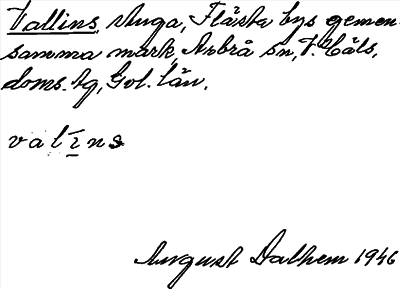 Vallins stuga, Fläska bys gemen-
samma mark, Arbrå sn, V. Häls.
doms.hg, Gvl. län.
valins
August Dalhem 1946